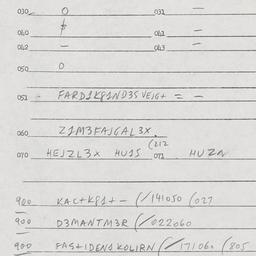 030 O 031 —
040 $ 041 —
042 — 043 —
050 O
051 - FARD1K81ND35 VEJG+ = —
060 Z1M3FAJGAL3X.
070 HEJZL3X HU1S (212 071 HUZN
900 KAC+K81+- (/141050 (027
900 D3MANTM3R (/022060
900 FAS+1DEN1 KOL1RN (/171060 (805